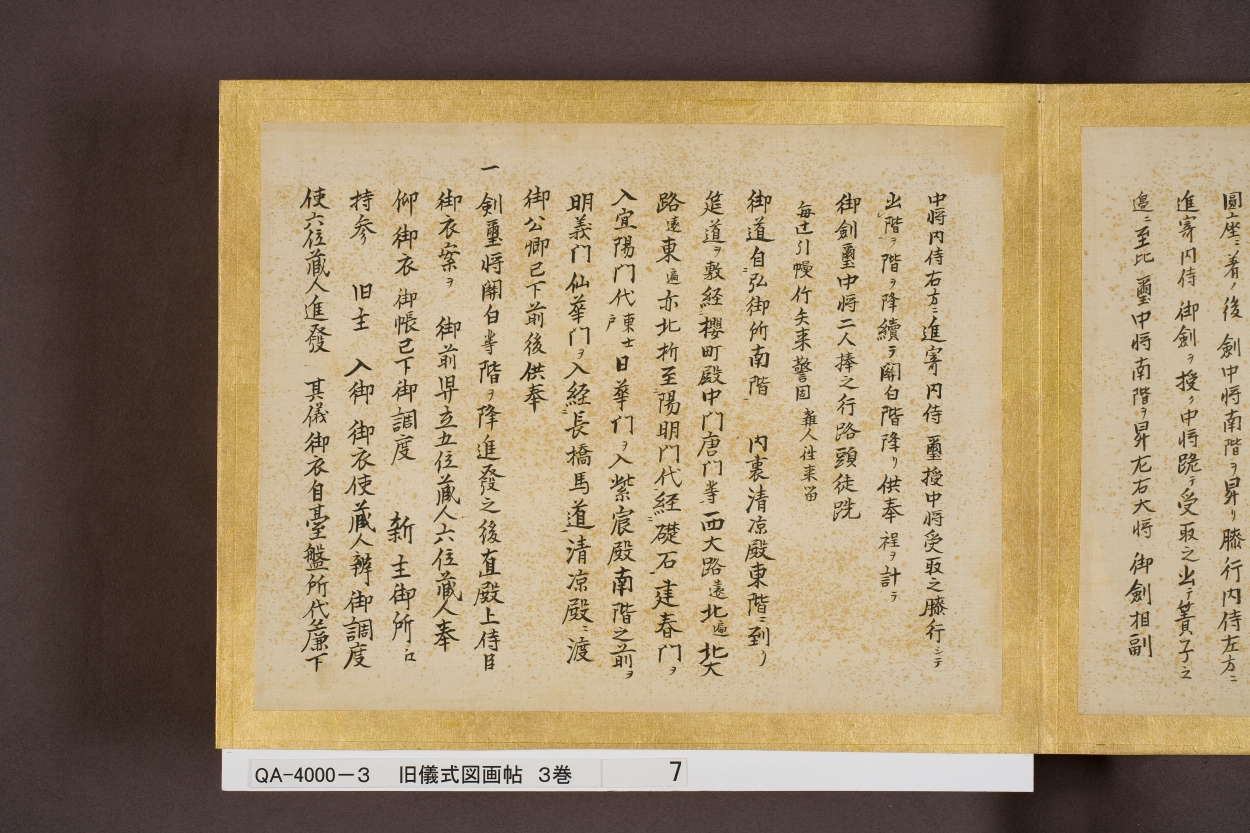 圓座ニ着ノ後 劍中将南階ヲ昇リ膝行内侍左方ニ
進寄内侍 御劍ヲ授ク中将跪テ受取之出テ簀子之
邉ニ至比 璽中将南階ヲ昇左右大将 御劍相副
中将内侍右方ニ進寄内侍 璽授中将受取之膝行シテ
出階ヲ階ヲ降續テ關白階降リ供奉 裎ヲ計テ
御劍璽中将二人捧之行路頭徒跣
毎辻引幔竹矢来警固 雜人往来留
御道自弘御所南階 内裏清凉殿東階ニ到ル
筵道ヲ敷経櫻町殿中門唐門等西大路逺北邉北大
路逺東邉亦北折至陽明門代経礎石建春門ヲ
入宜陽門代東士戸日華門ヲ入紫宸殿南階之前ヲ
明義門仙華門ヲ入経長橋馬道清凉殿ニ渡
御公卿已下前後供奉
一 剣璽将關白等階ヲ降進發之後直殿上侍臣
御衣案ヲ 御前舁立五位蔵人六位蔵人奉
仰御衣 御帳已下御調度 新主御所ニ
持参 旧主 入御 御衣使蔵人辨御調度
使六位蔵人進發 其儀御衣自臺盤所代簾下
QA-4000-3 旧儀式図画帖 3巻 7